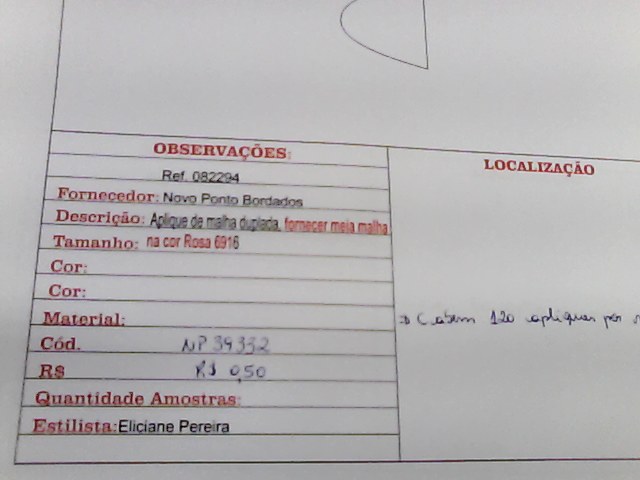 OBSERVAÇÕES:
Ref. 082294
Fornecedor: Novo Ponto Bordados
Descrição: Aplique de malha duplada, fornecer meia malha
Tamanho: na cor Rosa 6916
Cor:
Cor:
Material:
Cód. NP 39332
R$ R$ 0,50
Quantidade Amostras:
Estilista: Eliciane Pereira
LOCALIZAÇÃO
Cabem 120 apliques por